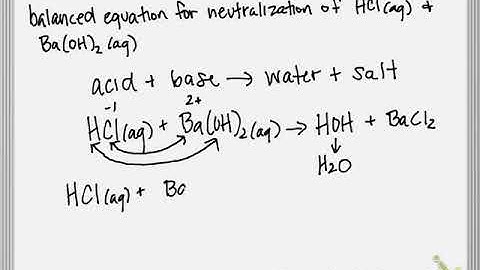 balanced equation for neutralization of HCl(aq) &
Ba(OH)₂(aq)
acid + base → water + salt
-1 2+
HCl(aq) + Ba(OH)₂(aq) → HOH + BaCl₂
↓
H₂O
HCl(aq) + Ba